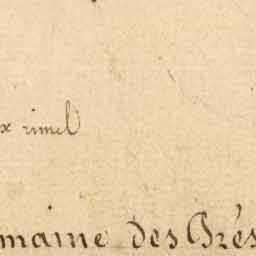 x rimel
maine des Prés